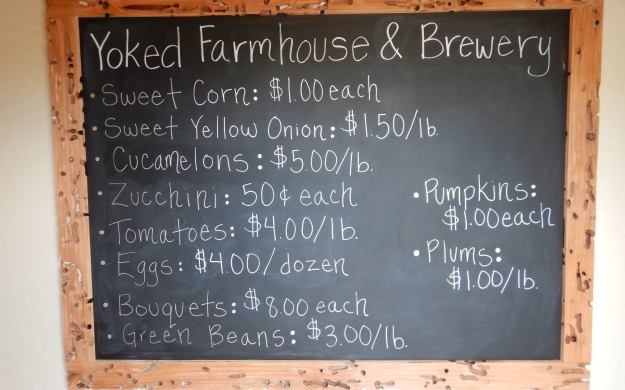 Yoked Farmhouse & Brewery
• Sweet Corn: $1.00 each
• Sweet Yellow Onion: $1.50/lb.
• Cucamelons: $5.00/lb.
• Zucchini: 50¢ each
• Tomatoes: $4.00/lb.
• Eggs: $4.00/dozen
• Bouquets: $8.00 each
• Green Beans: $3.00/lb.
• Pumpkins:
$1.00 each
• Plums:
$1.00/lb.